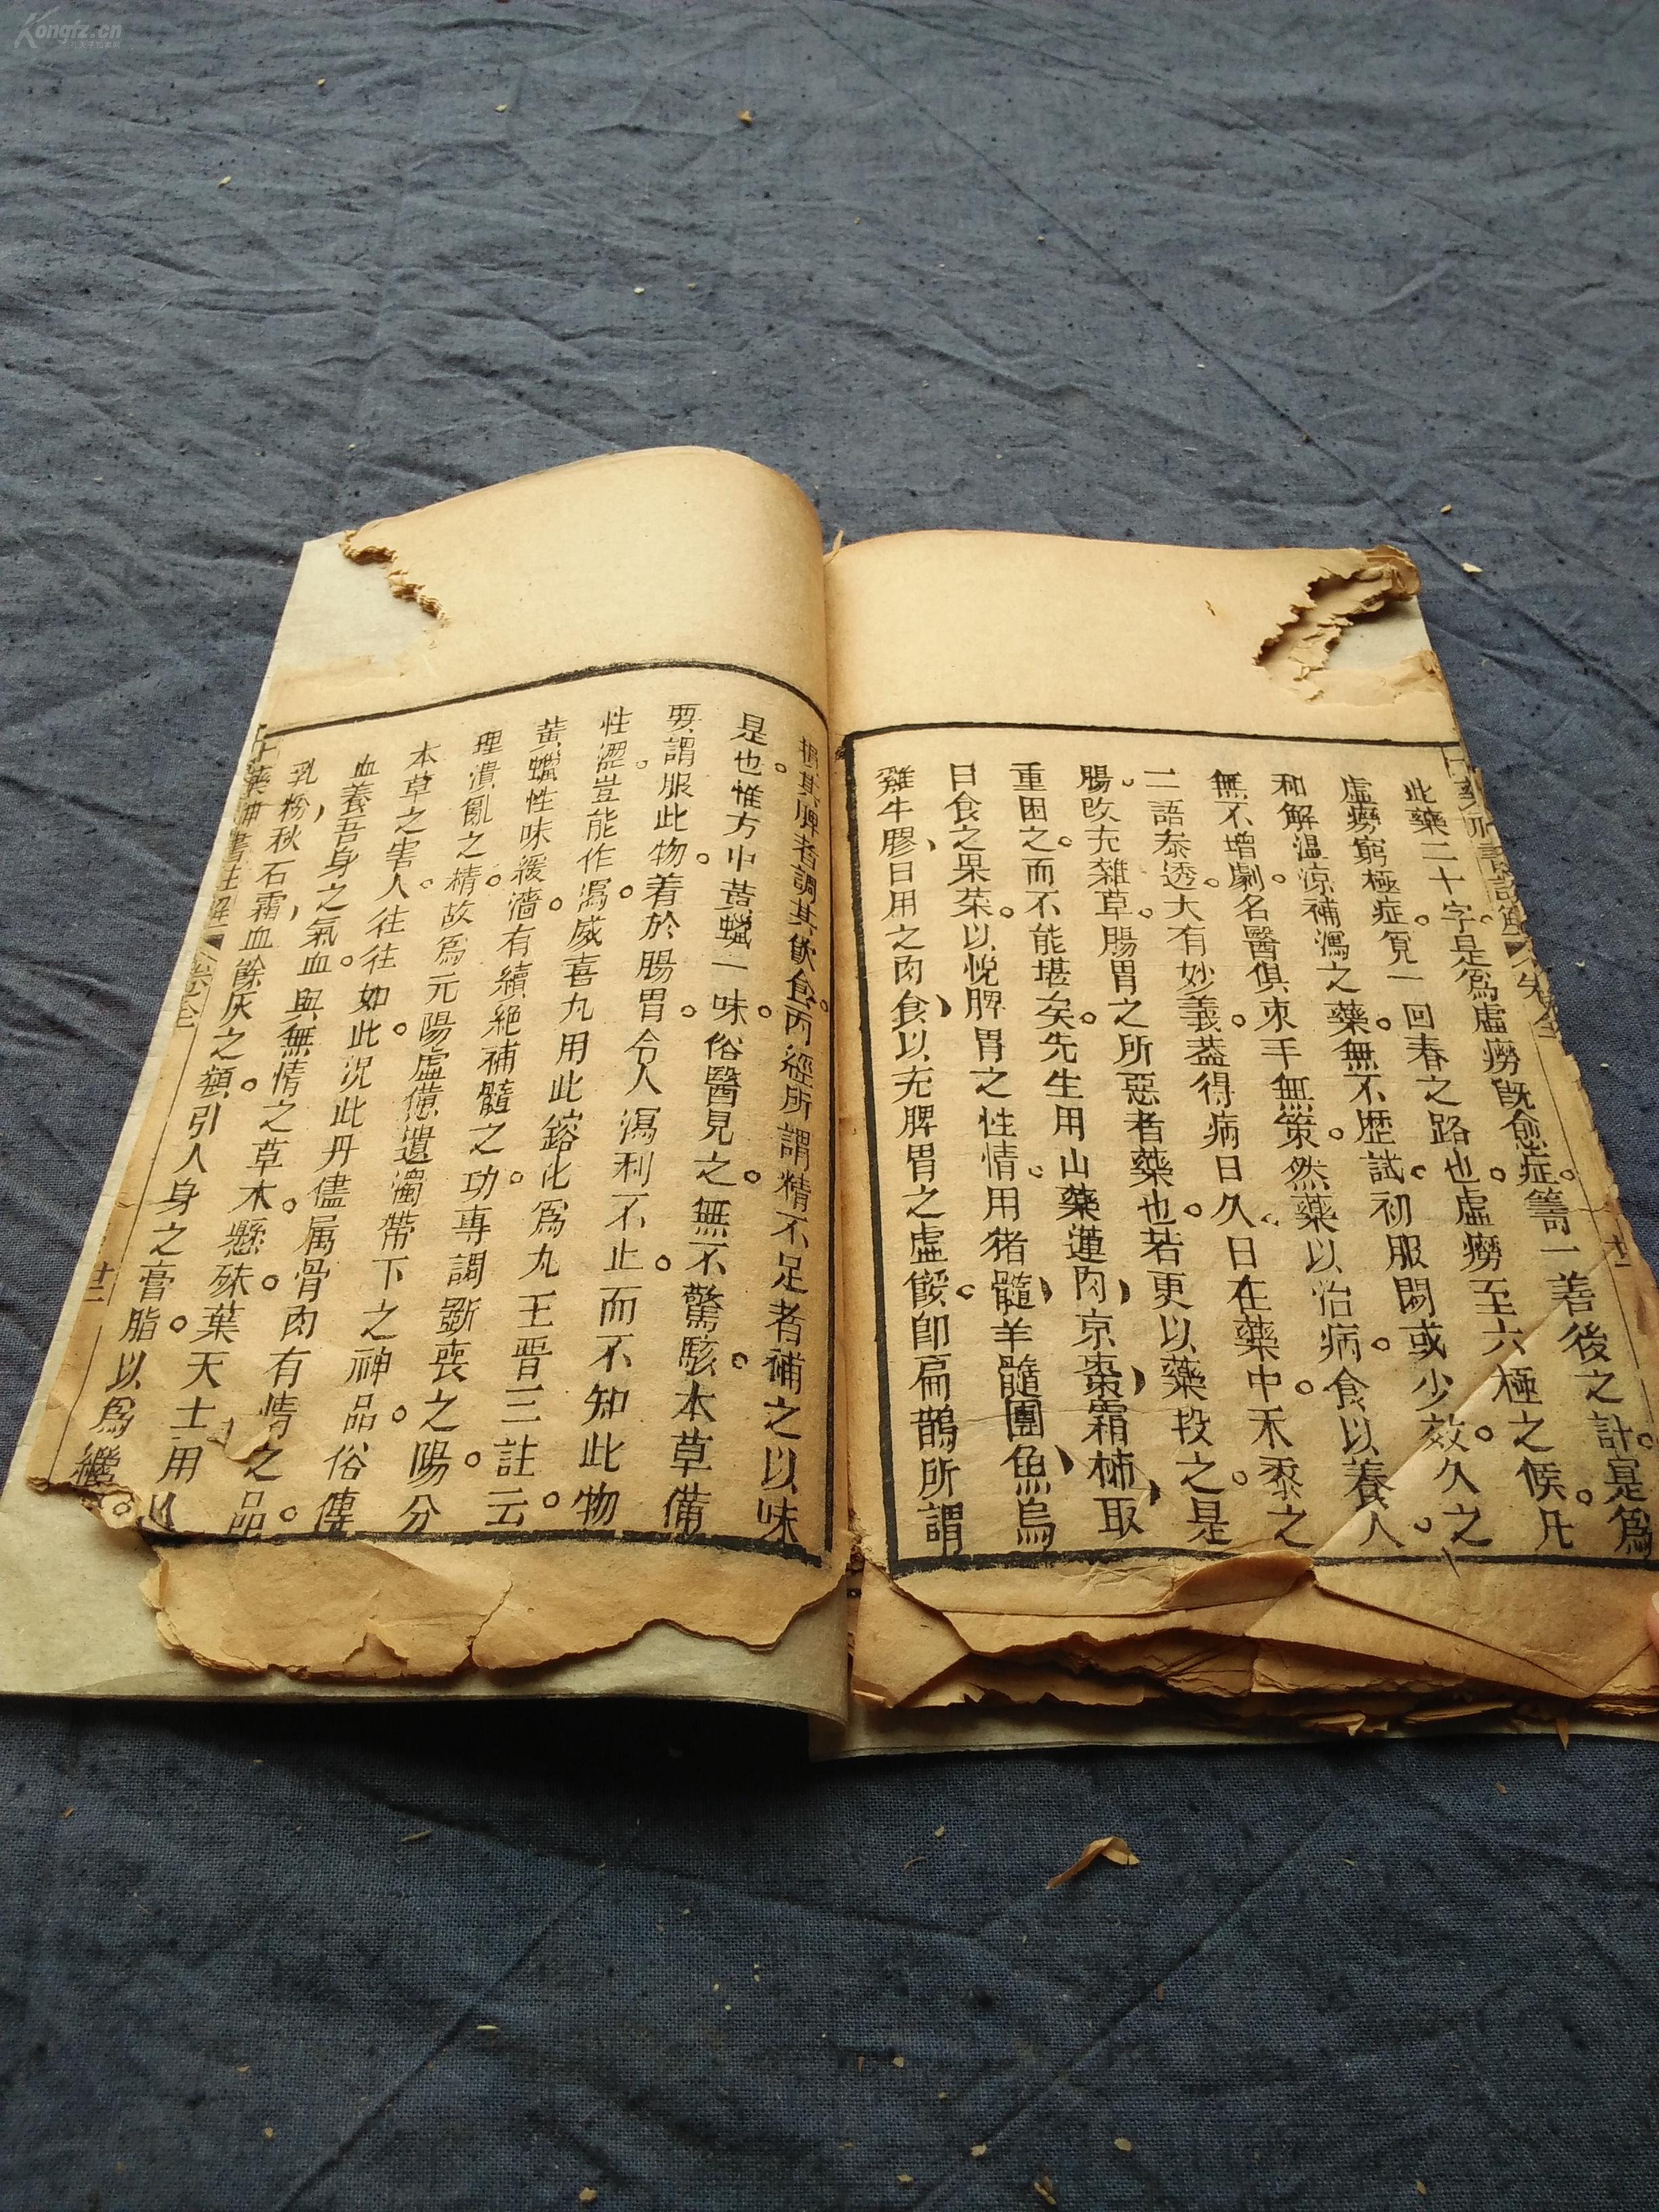 十藥神書註解 卷全 十二
此藥二十字是爲虛癆既愈症籌一善後之計寔爲
虛癆窮極症覓一回春之路也虛癆至六極之候凡
和解溫涼補瀉之藥無不歷試初服間或少效久之
無不增劇名醫俱束手無策然藥以治病食以養人
二語泰透大有妙義葢得病日久日在藥中禾黍之
腸改充雜草腸胃之所惡者藥也若更以藥投之是
重困之而不能堪矣先生用山藥蓮肉京棗霜柿取
日食之果菜以悅脾胃之性情用猪髓羊髓團魚烏
雞牛膠日用之肉食以充脾胃之虛餒即扁鵲所謂
損其脾者調其飲食內經所謂精不足者補之以味
是也惟方中黃蠟一味俗醫見之無不驚駭本草備
要謂服此物着於腸胃令人瀉利不止而不知此物
性澀豈能作瀉威喜丸用此鎔化爲丸王晋三註云
黃蠟性味緩濇有續絕補髓之功專調斵喪之陽分
理潰亂之精故爲元陽虛憊遺濁帶下之神品俗傳
本草之害人往往如此況此丹儘属骨肉有情之品
血養吾身之氣血與無情之草木懸殊葉天士用
乳粉秋石霜血餘灰之類引人身之膏脂以爲繼
十藥神書註解 卷全 十二
Kongfz.cn